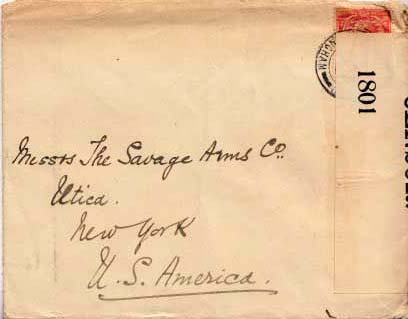 Messrs The Savage Arms Co.
Utica.
New York
U. S. America.
1801